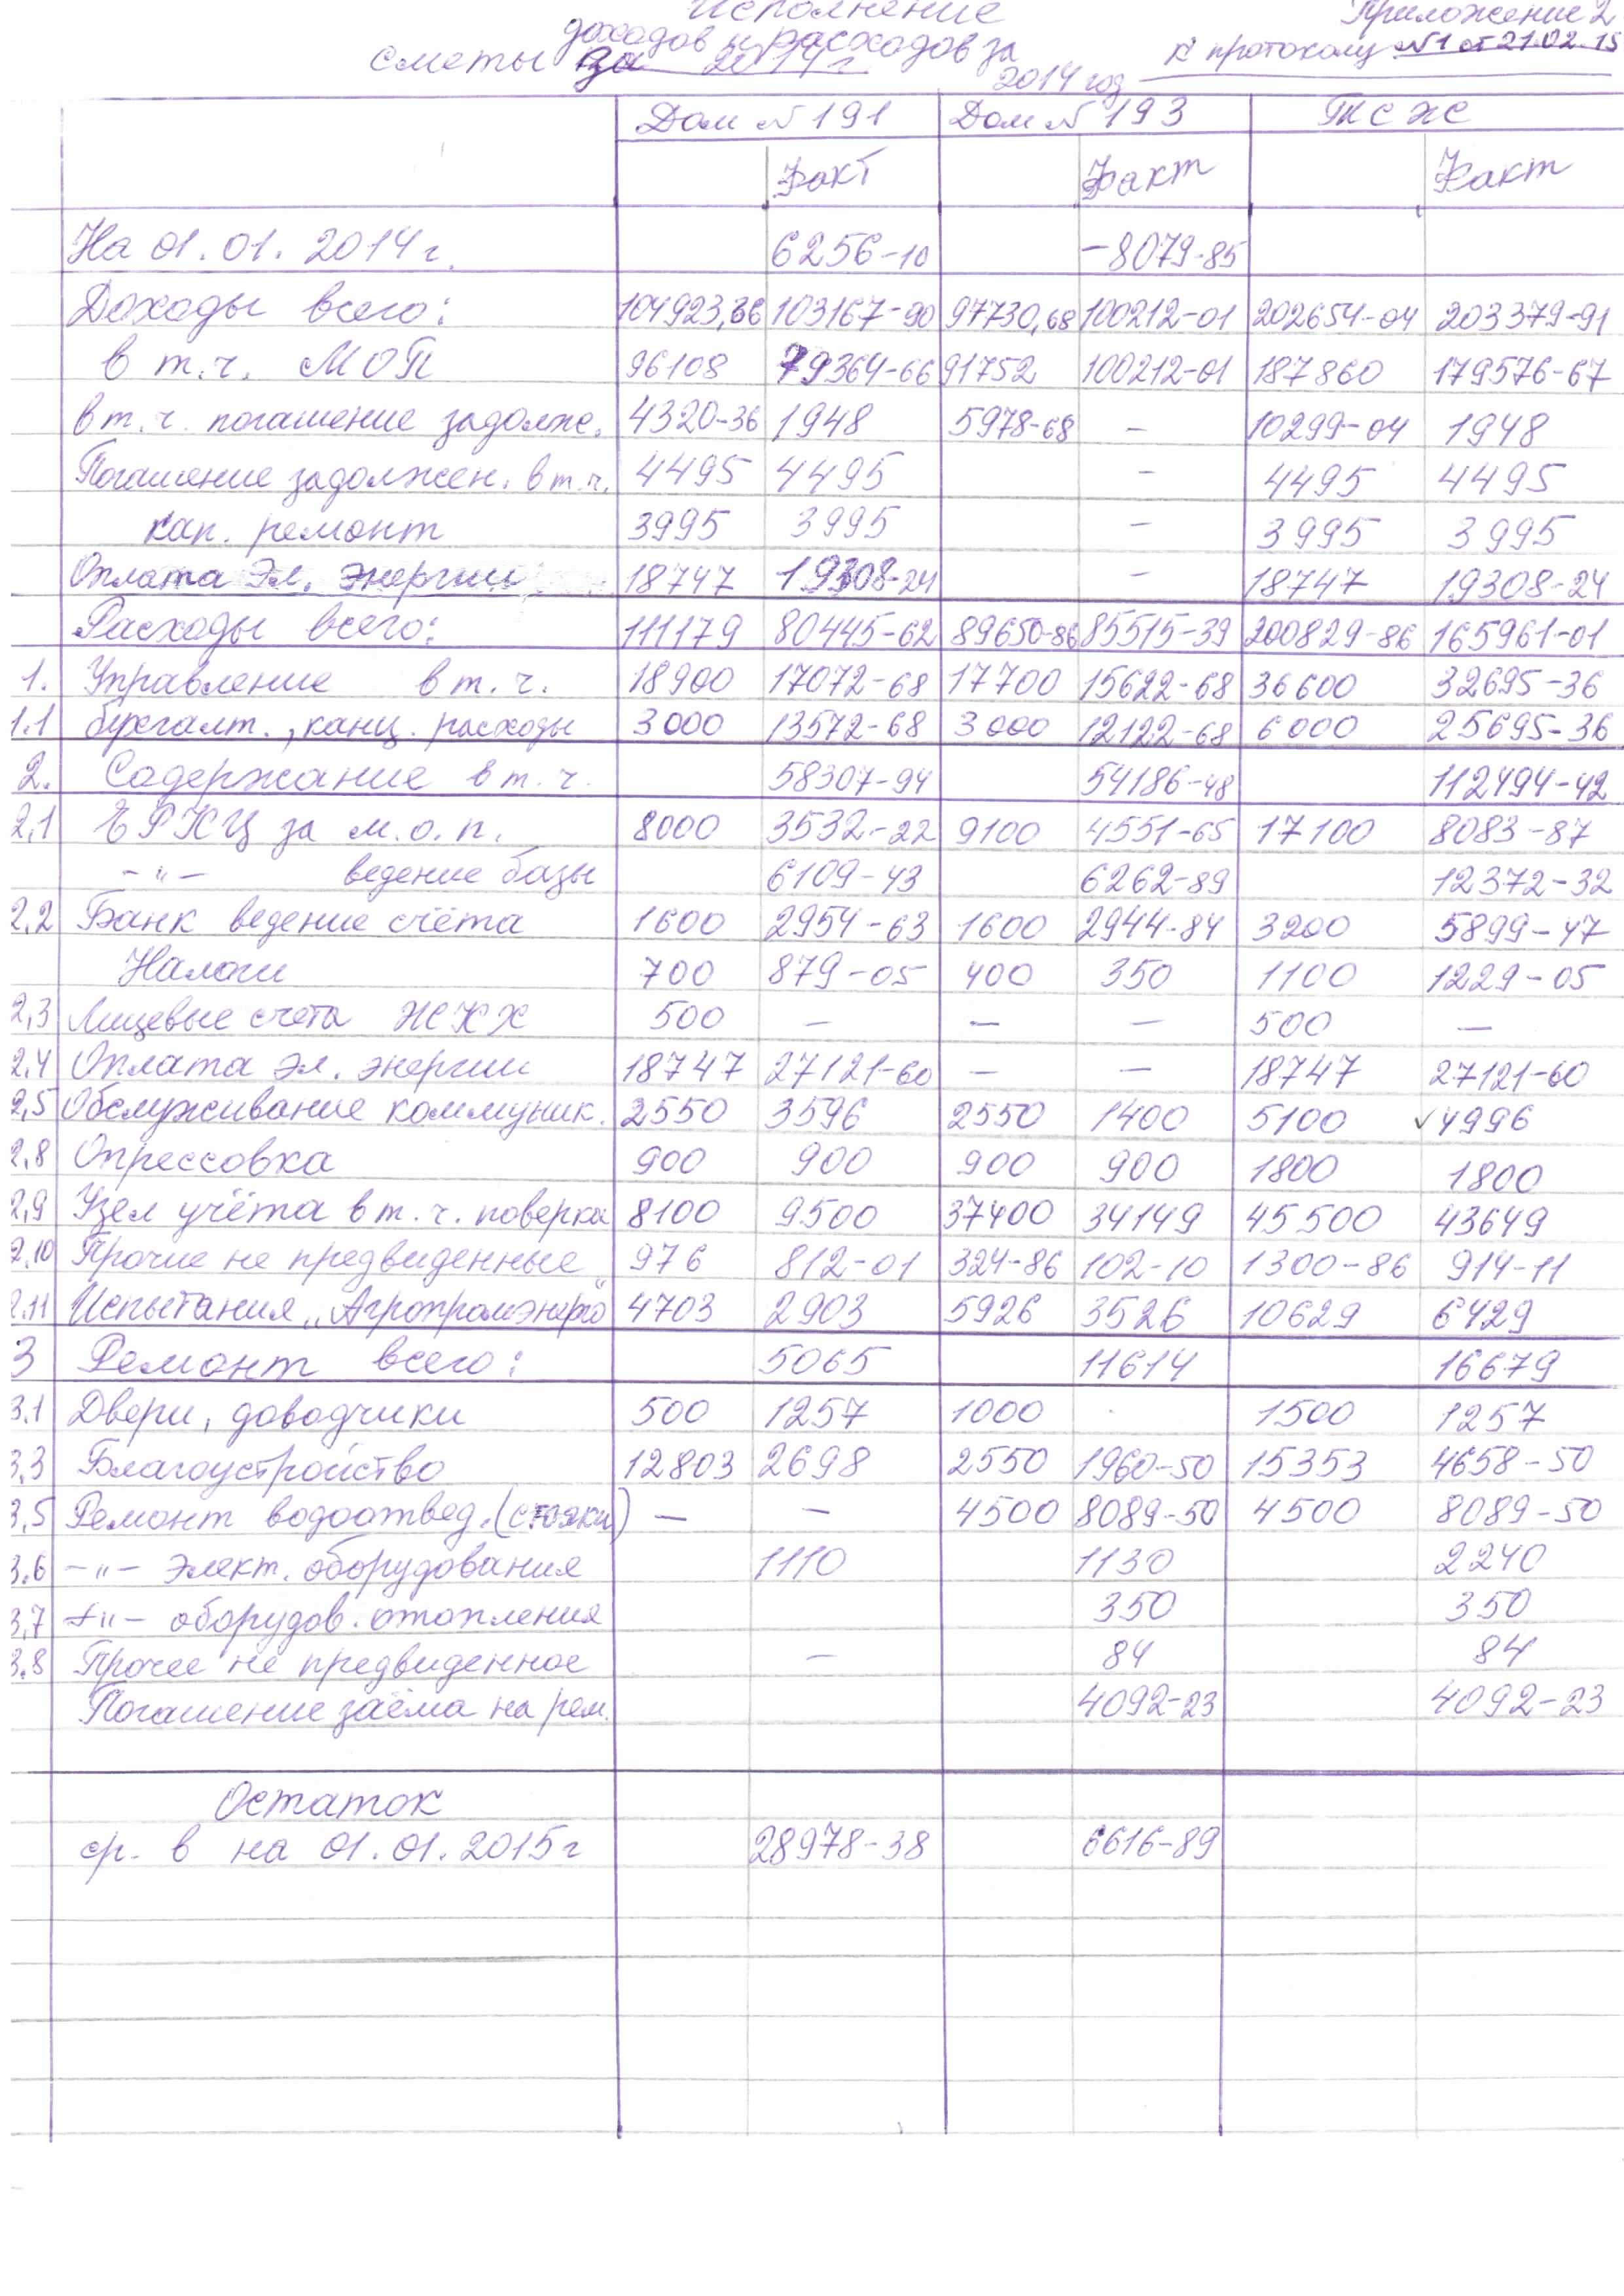 Исполнение Приложение 2
доходов и расходов за
сметы за 2014 г. к протоколу №1 от 21.02.15
2014 год
Дом №191 Дом №193 ТСЖ
Факт Факт Факт
На 01.01.2014 г. 6256-10 -8079-85
Доходы всего: 104923,36 103167-90 97730,68 100212-01 202654-04 203379-91
в т.ч. МОП 96108 79364-66 91752 100212-01 187860 179576-67
в т.ч. погашение задолже. 4320-36 1948 5978-68 – 10299-04 1948
Погашение задолжен. в т.ч. 4495 4495 – 4495 4495
кап. ремонт 3995 3995 – 3995 3995
Оплата Эл. энергии 18747 19308-24 – 18747 19308-24
Расходы всего: 111179 80445-62 89650-86 85515-39 200829-86 165961-01
1. Управление в т.ч. 18900 17072-68 17700 15622-68 36600 32695-36
1.1 бухгалт., канц. расходы 3000 13572-68 3000 12122-68 6000 25695-36
2. Содержание в т.ч. 58307-94 54186-48 112494-42
2,1 ЕРКЦ за м.о.п. 8000 3532-22 9100 4551-65 17100 8083-87
-"- ведение базы 6109-43 6262-89 12372-32
2,2 Банк ведение счёта 1600 2954-63 1600 2944-84 3200 5899-47
Налоги 700 879-05 400 350 1100 1229-05
2,3 Лицевые счета ЖКХ 500 – – – 500 –
2.4 Оплата эл. энергии 18747 27121-60 – – 18747 27121-60
2,5 Обслуживание коммуник. 2550 3596 2550 1400 5100 ✓4996
2,8 Опрессовка 900 900 900 900 1800 1800
2,9 Узел учёта в т.ч. поверка 8100 9500 37400 34149 45500 43649
2.10 Прочие не предвиденные 976 812-01 324-86 102-10 1300-86 914-11
2.11 Испытания „Агропромэнерго" 4703 2903 5926 3526 10629 6429
3 Ремонт всего: 5065 11614 16679
3.1 Двери, доводчики 500 1257 1000 1500 1257
3,3 Благоустройство 12803 2698 2550 1960-50 15353 4658-50
3,5 Ремонт водоотвед. (стояки) – – 4500 8089-50 4500 8089-50
3.6 -"- элект. оборудования 1110 1130 2240
3,7 -"- оборудов. отопления 350 350
3.8 Прочее не предвиденное – 84 84
Погашение заёма на рем. 4092-23 4092-23
Остаток
ср. в на 01.01.2015 г 28978-38 6616-89